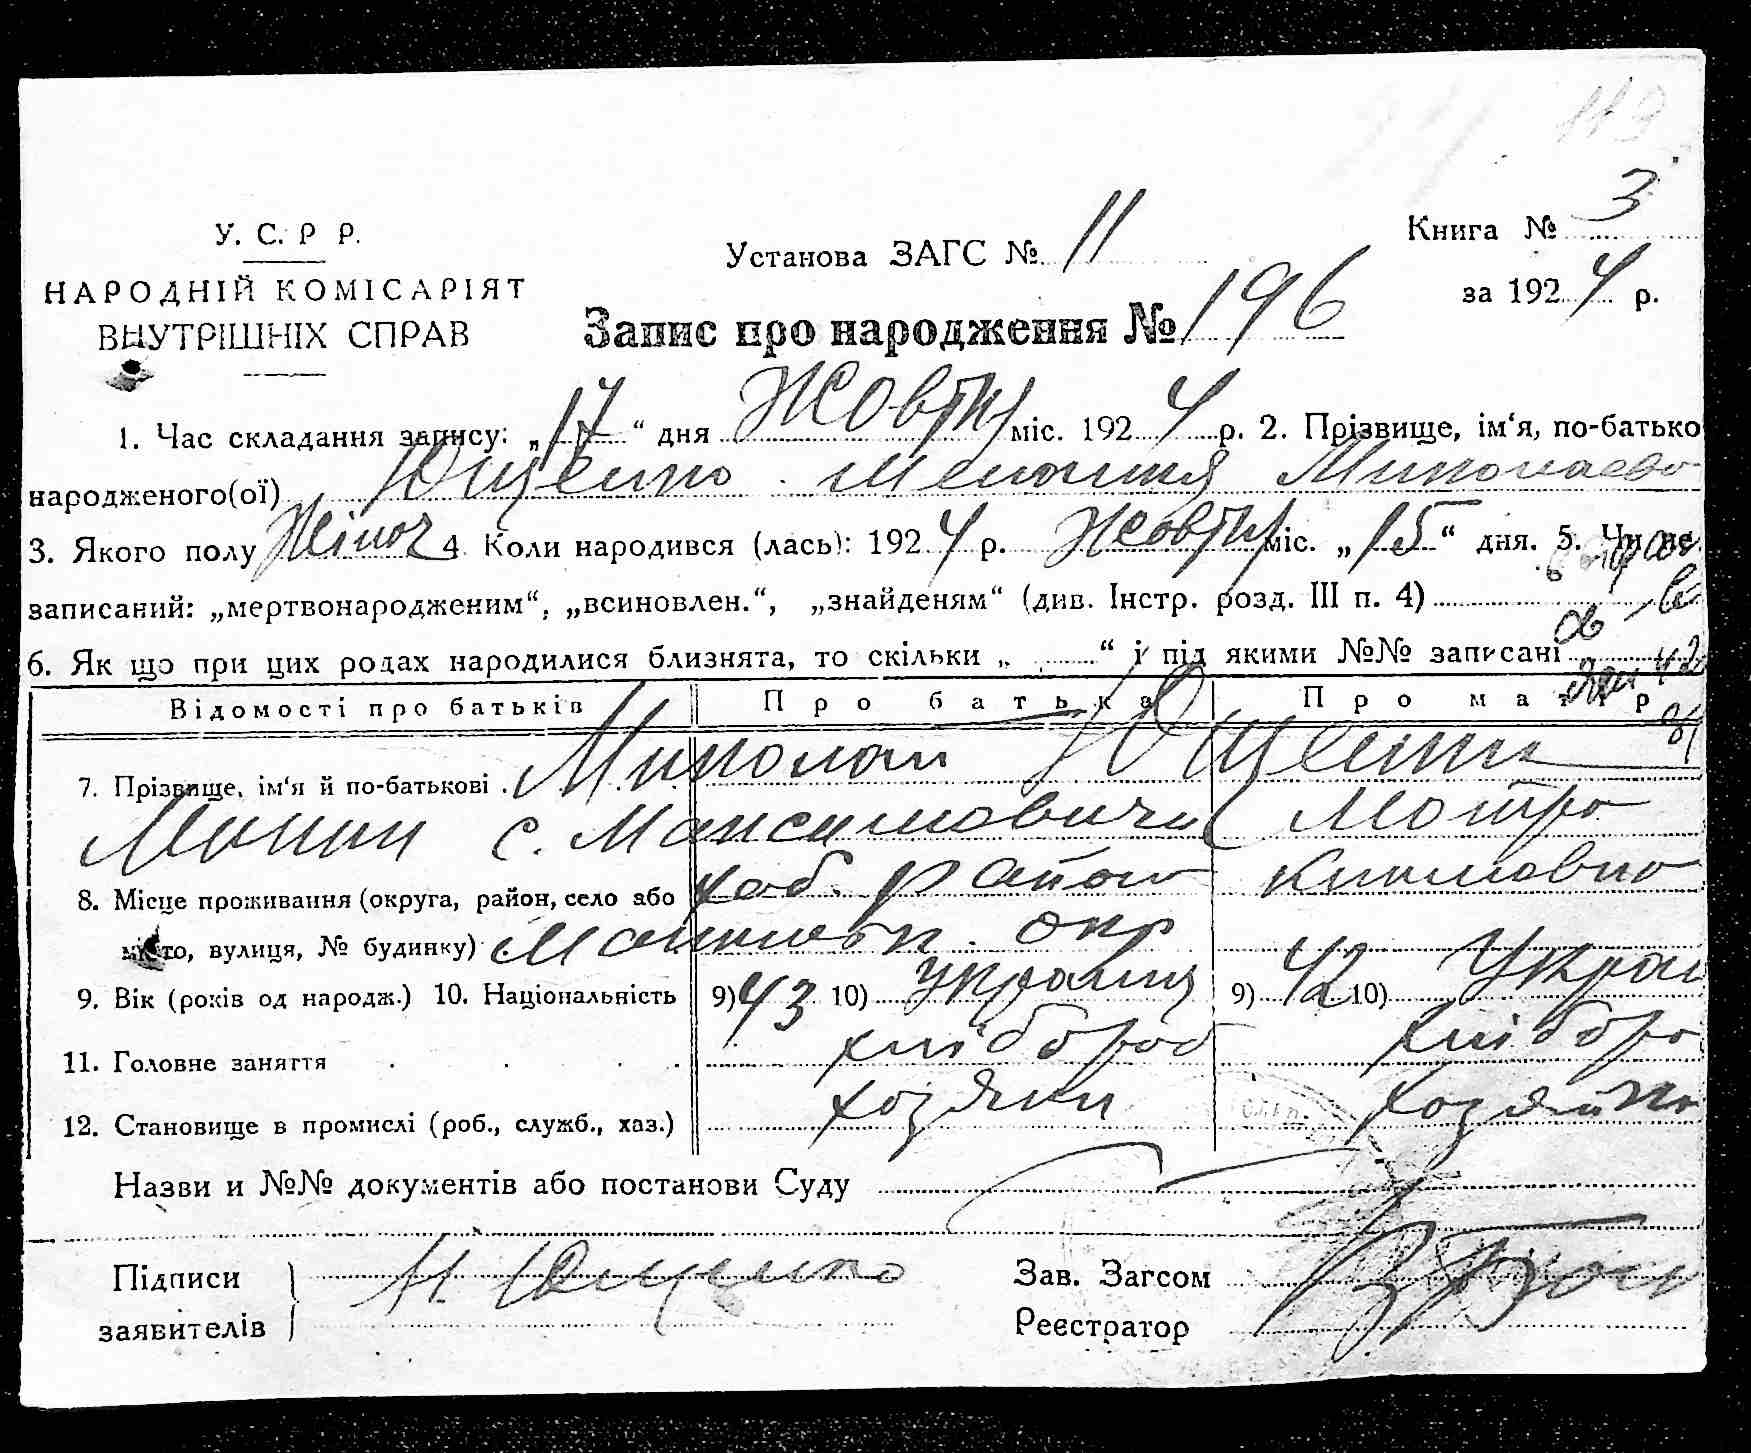 119
У. С. Р Р.
НАРОДНІЙ КОМІСАРІЯТ
ВНУТРІШНІХ СПРАВ
Установа ЗАГС №. 11
Книга № 3
за 1924 р.
Запис про народження № 196
1. Час складання запису: „17“ дня Жовтня міс. 1924 р. 2. Прізвище, ім‘я, по-батько
народженого(ої) Ющенко Меланія Миколаевн
3. Якого полу Жіноч 4. Коли народився (лась): 1924 р. Жовтня міс. „15“ дня. 5. Чи не
записаний: „мертвонародженим“, „всиновлен.“, „знайденям“ (див. Інстр. розд. III п. 4)
6. Як що при цих родах народилися близнята, то скільки „ “ і під якими №№ записані
Відомості про батьків Про батька Про матір
7. Прізвище, ім‘я й по-батькові . Миколай Ющенки
с. Максимовичи Мотра
8. Місце проживання (округа, район, село або хаб. район Климовна
місто, вулиця, № будинку) окр
9. Вік (років од народж.) 10. Національність 9) 43 10) украінц 9) 42 10) Украі
11. Головне заняття . . . . хлібороб хліборо
12. Становище в промислі (роб., служб., хаз.) хозяин хозяйка
Назви и №№ документів або постанови Суду
Підписи Н. Ющенко Зав. Загсом
заявителів Реєстратор